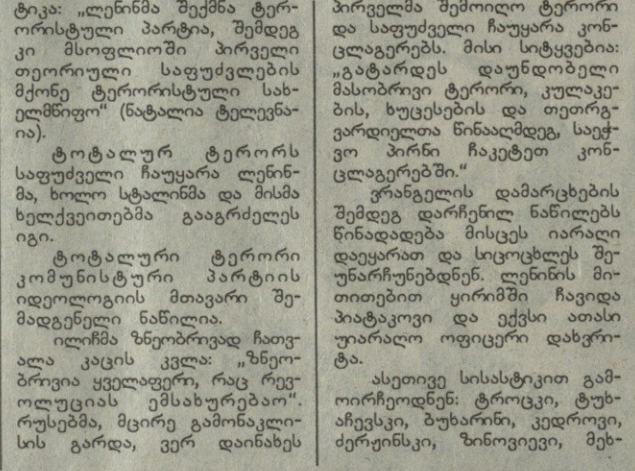 ტიკა: „ლენინმა შექმნა ტერ-
ორისტული პარტია, შემდეგ
კი მსოფლიოში პირველი
თეორიული საფუძვლების
მქონე ტერორისტული სახ-
ელმწიფო“ (ნატალია ტელევნა-
ია).
ტოტალურ ტერორს
საფუძველი ჩაუყარა ლენინ-
მა, ხოლო სტალინმა და მისმა
ხელქვეითებმა გააგრძელეს
იგი.
ტოტალური ტერორი
კომუნისტური პარტიის
იდეოლოგიის მთავარი შე-
მადგენელი ნაწილია.
ილიჩმა ზნეობრივად ჩათვ-
ალა კაცის კვლა: „ზნეო-
ბრივია ყველაფერი, რაც რევ-
ოლუციას ემსახურებაო“.
რუსებმა, მცირე გამონაკლი-
სის გარდა, ვერ დაინახეს
პირველმა შემოიღო ტერორი
და საფუძველი ჩაუყარა კონ-
ცლაგერებს. მისი სიტყვებია:
„გატარდეს დაუნდობელი
მასობრივი ტერორი, კულაკე-
ბის, ხუცესების და თეთრგ-
ვარდიელთა წინააღმდეგ, საეჭ-
ვო პირნი ჩაკეტეთ კონ-
ცლაგერებში.“
ვრანგელის დამარცხების
შემდეგ დარჩენილ ნაწილებს
წინადადება მისცეს იარაღი
დაეყარათ და სიცოცხლეს შე-
უნარჩუნებდნენ. ლენინის მი-
თითებით ყირიმში ჩავიდა
პიატაკოვი და ექვსი ათასი
უიარაღო ოფიცერი დახვრი-
ტა.
ასეთივე სისასტიკით გამ-
ოირჩეოდნენ: ტროცკი, ტუხ-
აჩევსკი, ბუხარინი, კედროვი,
ძერჟინსკი, ზინოვიევი, მეხ-